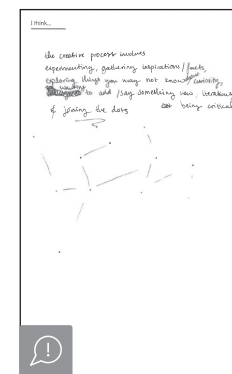 I think...
the creative process involves
experimenting, gathering inspirations / facts,
exploring things you may not know about, curiosity,
wanting to add / say something new, iterations
& joining the dots being critical